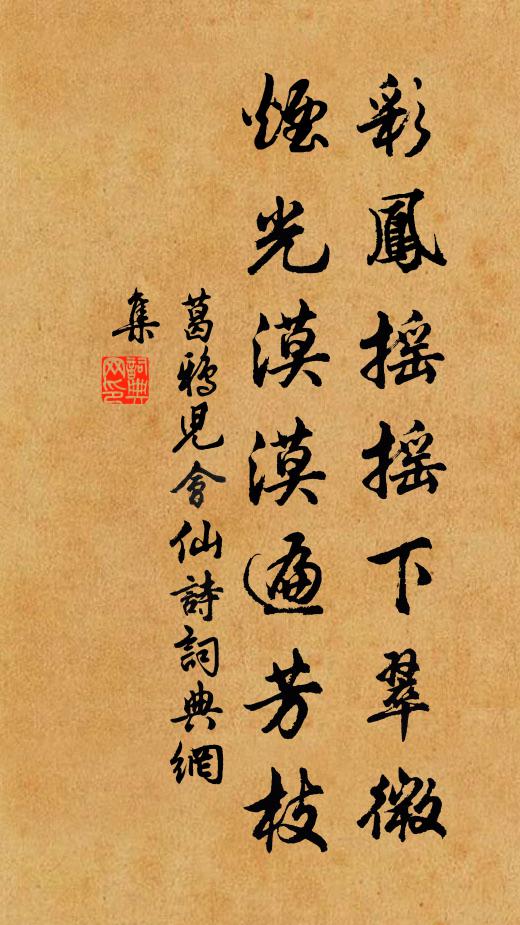 彩鳳搖搖下翠微
煙光漠漠遍芳枝
葛鴉兒會仙詩詞典網
集
詞典網印